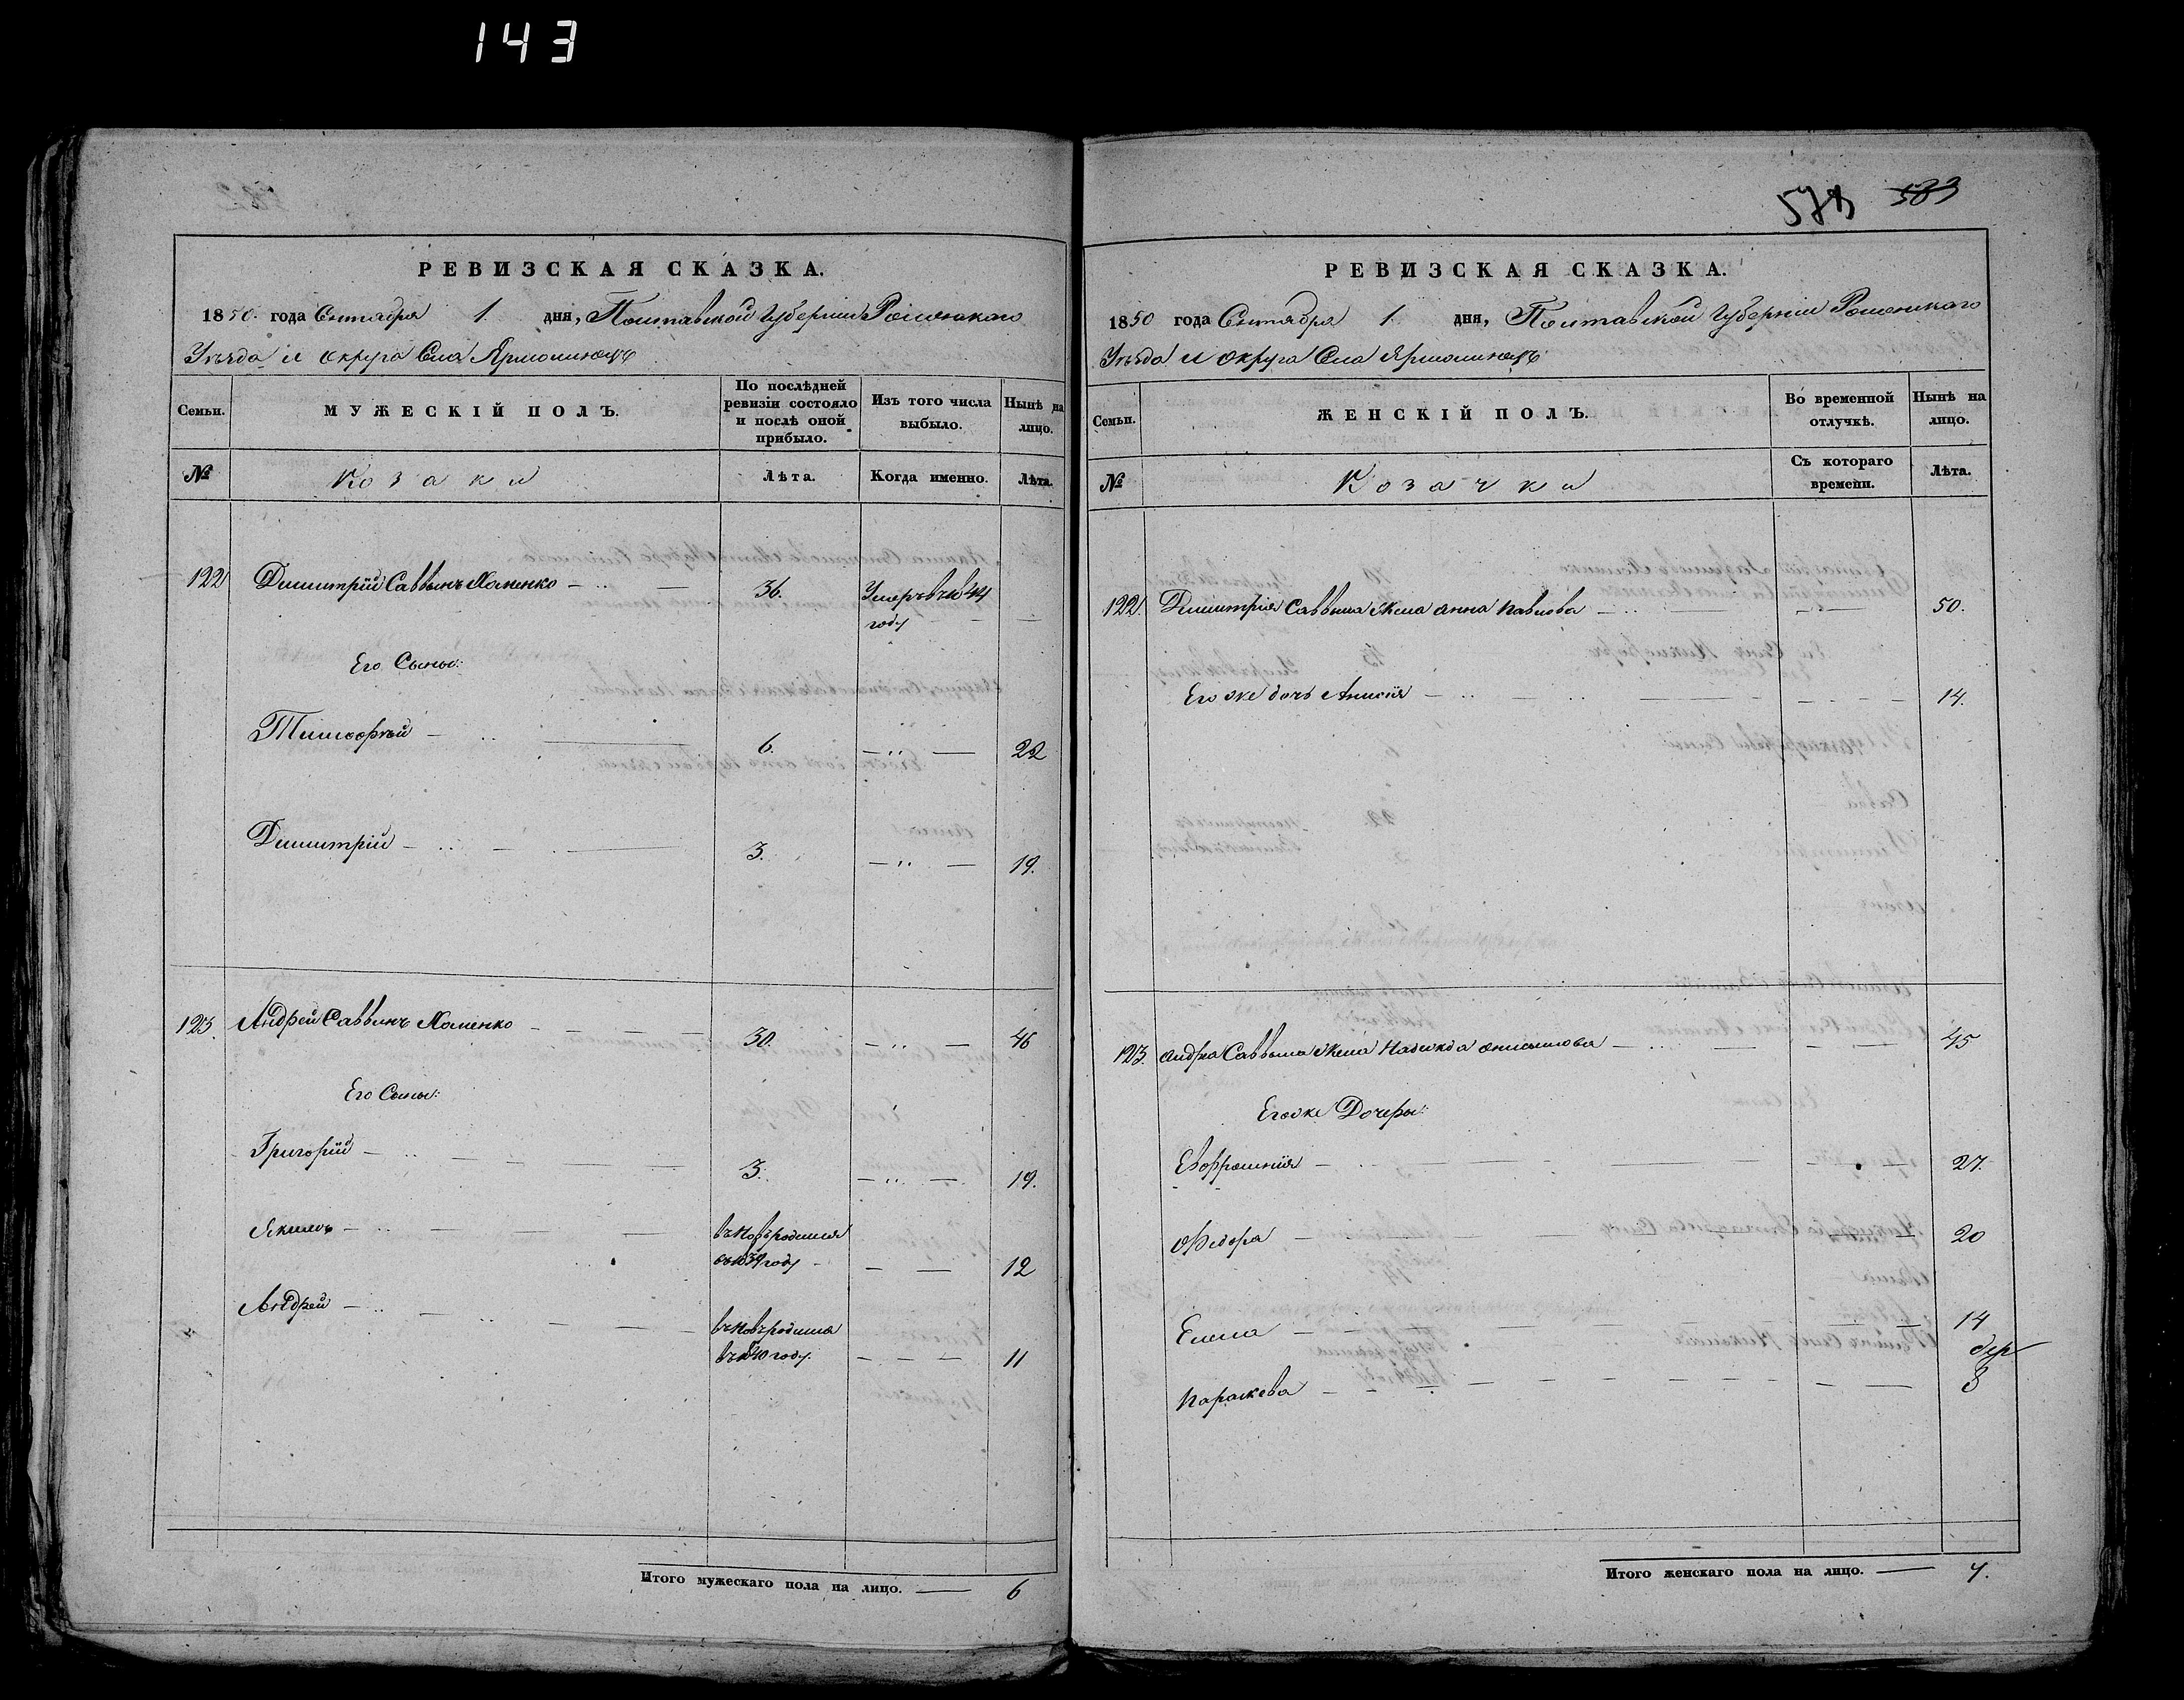 143
РЕВИЗСКАЯ СКАЗКА.
1850. года Сентября 1. дня, Полтавской Губерніи Роменскаго
Уѣзда и округа Села Ярмолинецъ
Семьи.
МУЖЕСКІЙ ПОЛЪ.
По послѣдней ревизіи состояло и послѣ оной прибыло.
Изъ того числа выбыло.
Нынѣ на лицо.
№
Козаки
Лѣта.
Когда именно.
Лѣта.
122 Димитрій Саввинъ Хоменко 36. Умеръ въ 1844
году
Его Сыны:
Тимофѣй 6. 22
Димитрій 3. 19.
123. Андрей Саввинъ Хоменко 30. 46
Его Сыны:
Григорій 3. 19.
Якимъ
въ 1839 году 12
Андрей
въ 1840 году. 11
Итого мужескаго пола на лицо. 6
583
РЕВИЗСКАЯ СКАЗКА.
1850 года Сентября 1. дня, Полтавской Губерніи Роменскаго
Уѣзда и округа Села Ярмолинецъ
Семьи.
ЖЕНСКІЙ ПОЛЪ.
Во временной отлучкѣ.
Нынѣ на лицо.
№
Козачки
Съ котораго времени.
Лѣта.
122. Димитрія Саввина жена Анна Павлова 50.
Его же дочь Анисія 14.
123. Андрея Саввина жена Надежда Онисимова 45
Его же Дочеры:
Евфросинія 27.
Федора 20
Елена 14
Параскева 8
Итого женскаго пола на лицо. 7.